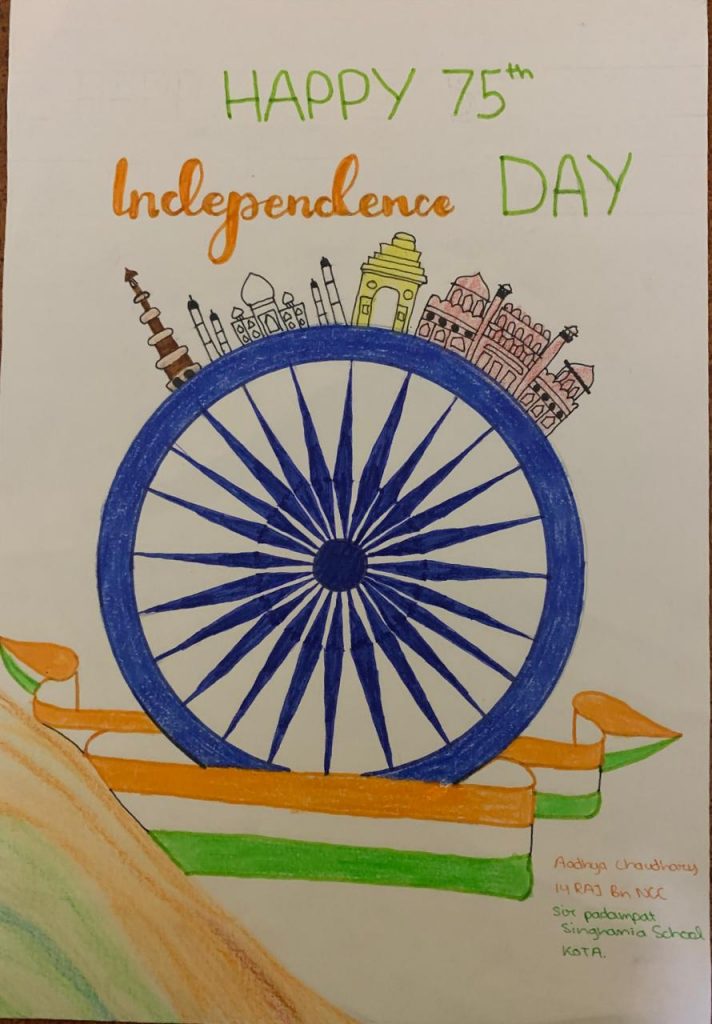 HAPPY 75th
Independence DAY
Aadhya Chaudhary
14 RAJ Bn NCC
Sir padampat
Singhania School
KOTA.